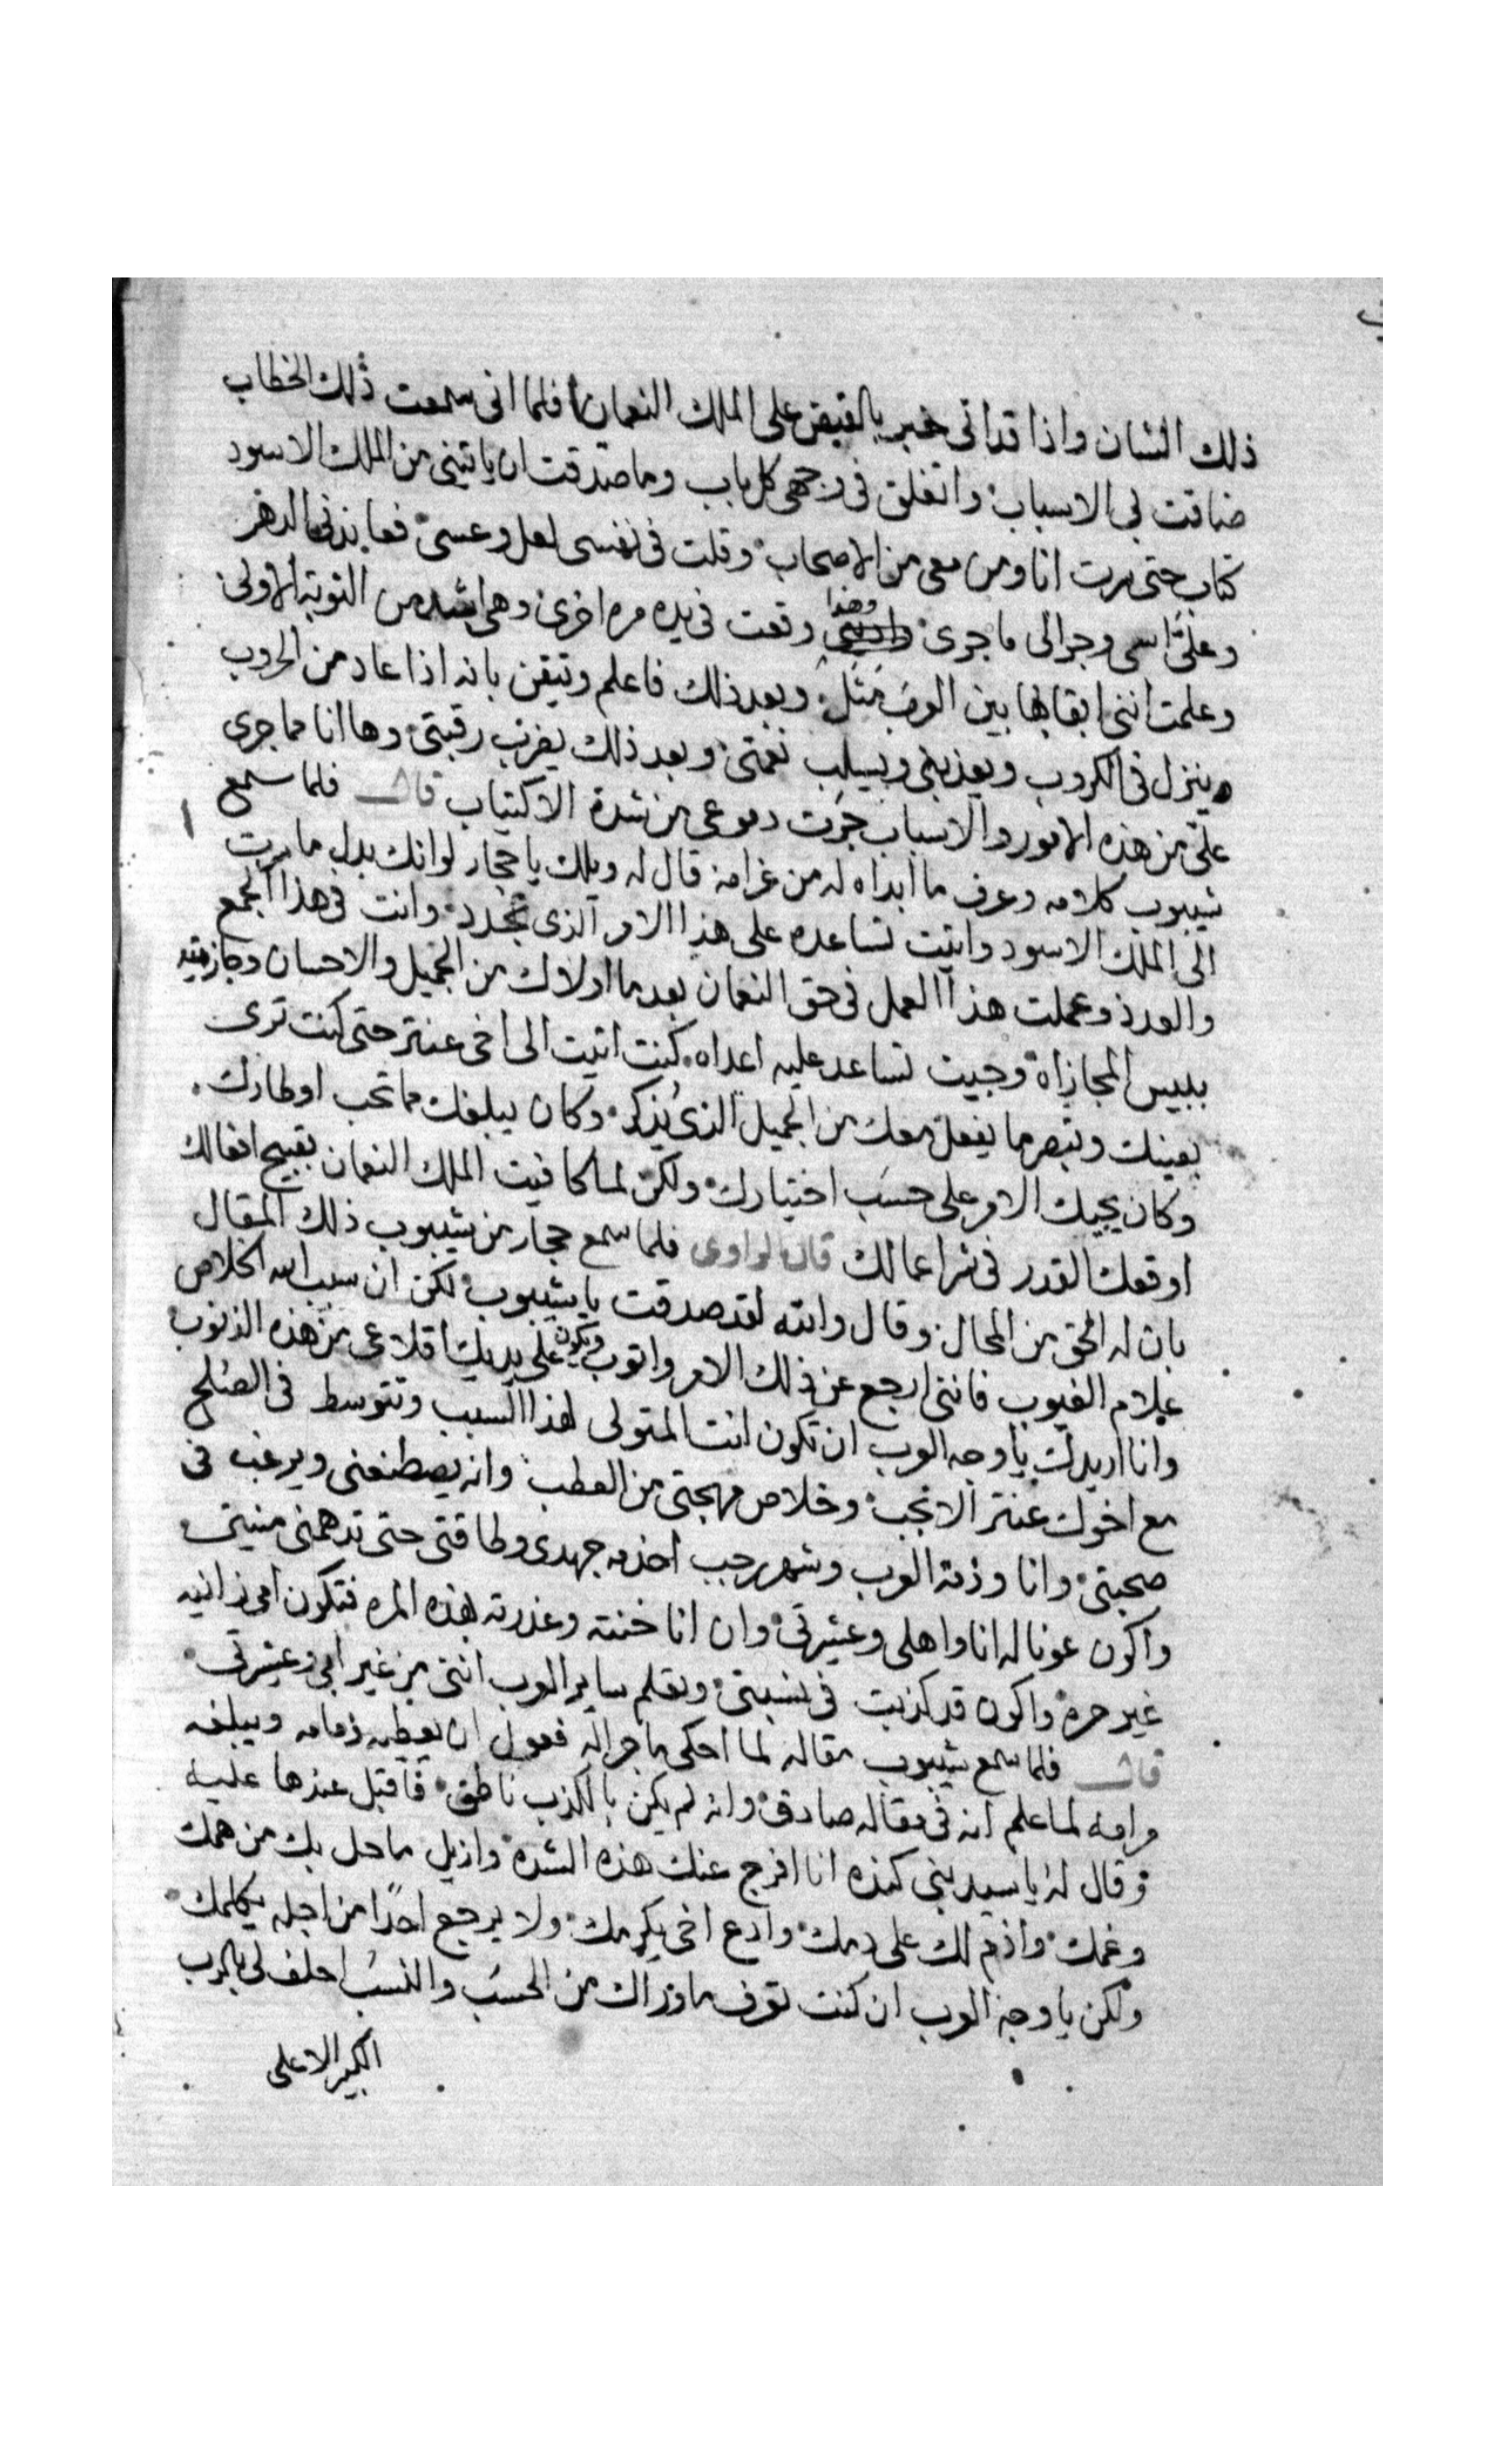 ذلك الشان واذا قد اتى خبر بالقبض على الملك النعمان فلما انى سمعت ذلك الخطاب
ضاقت بى الاسباب وانغلق فى وجهى كل باب وما صدقت ان ياتينى من الملك الاسود
كتاب حتى سرت انا ومن معى من الاصحاب وقلت فى نفسى لعل وعسى فعاندنى الدهر
وعلىّ اسى وجرا لى ما جرى وهذا وقعت فى يده مره اخرى وهى اشد من النوبة الاولى
وعلمت اننى ابقا بها بين العرب مثل وبعد ذلك فاعلم وتيقن بانه اذا عاد من الحروب
ينزل فى الكروب ويعذبنى ويسلب نعمتى وبعد ذلك يضرب رقبتى وها انا مما جرى
علىّ من هذه الامور والاسباب جرت دموعى من شدة الاكتياب قال فلما سمع
شيبوب كلامه وعرف ما ابداه له من غرامه قال له ويلك يا حجار لو انك بدل ما سرت
الى الملك الاسود واتيت تساعده على هذا الامر الذى تجدد وانت فى هذا الجمع
والعدد وعملت هذا العمل فى حق النعمان بعد ما اولاك من الجميل والاحسان وجازيته
ببيس المجازاة وجيت تساعد عليه اعداه كنت اتيت الى اخى عنتر حتى كنت ترى
بعينك وتبصر ما يفعل معك من الجميل الذى يُذكر وكان يبلغك مما تحب اوطارك
وكان يجيك الامر على حسب اختيارك ولكن لما كافيت الملك النعمان بقبيح افعالك
اوقعك القدر فى شر اعمالك قال الراوى فلما سمع حجار من شيبوب ذلك المقال
بان له الحق من المحال وقال والله لقد صدقت يا شيبوب لكن ان سبب الله الخلاص
علام الغيوب فاننى ارجع عن ذلك الامر واتوب ويكون على يديك اقلاعى من هذه الذنوب
وانا اريدك يا وجه العرب ان تكون انت المتولى لهذا السبب وتتوسط فى الصلح
مع اخوك عنتر الانجب وخلاص مهجتى من العطب وانه يصطنعنى ويرغب فى
صحبتى وانا وذمة العرب وشهر رجب اخدمه جهدى وطاقتى حتى تدهمنى منيتى
واكون عونا له انا واهلى وعشيرتى وان انا خنته وغدرته بهذه المره فتكون امى زانيه
غير حره واكون قد كذبت فى نسبتى وتعلم ساير العرب اننى من غير ابى وعشرتى
قال فلما سمع شيبوب مقاله لما احكى ما جراله فعول ان يعطيه ذمامه ويبلغه
مرامه لما علم انه فى مقاله صادق وانه لم يكن بالكذب ناطق فاقبل عندها عليه
وقال له يا سيد بنى كنده انا افرج عنك هذه الشده وازيل ما حل بك من همك
وغمك واذم لك على دمك وادع اخى يكرمك ولا يرجع احدًا من اجله يكلمك
ولكن يا وجه العرب ان كنت تعرف ما وراك من الحسب والنسب احلف لى بالرب
الكبير الاعلى